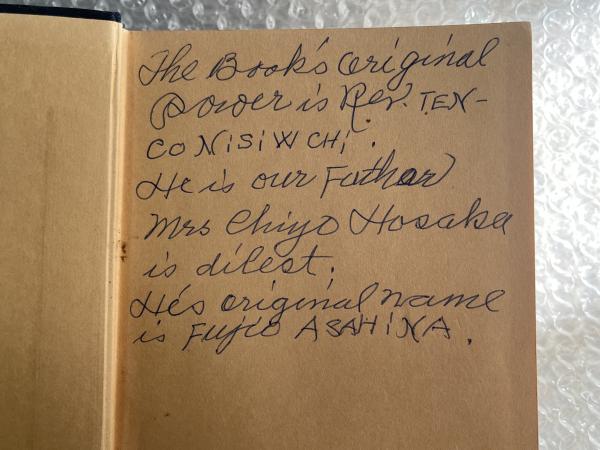 The Book's Original
Power is Rev. TEN-
CO NiSiWCHi.
He is our Father
Mrs Chiyo Hosaka
is dilest.
He's original name
is Fujio ASAHiNA.